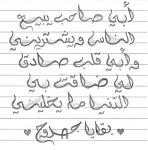 أبي صاحب يبيع
الناس ويشتريني
وأبي قلب صادق
لي ضاقت بي
الدنيا ما يخليني
بقايا جروح